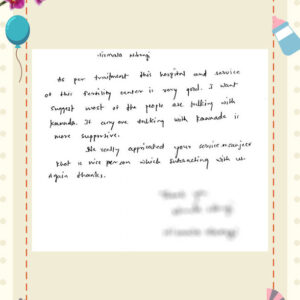 Nirmala
As per truitment this hospital and service
of this fertility center is very good. I want
suggest most of the people are talking with
kannada. If anyone talking with kannada is
more supportive.
We really appriciated your service manager
that is nice person which interacting with us
Again thanks.